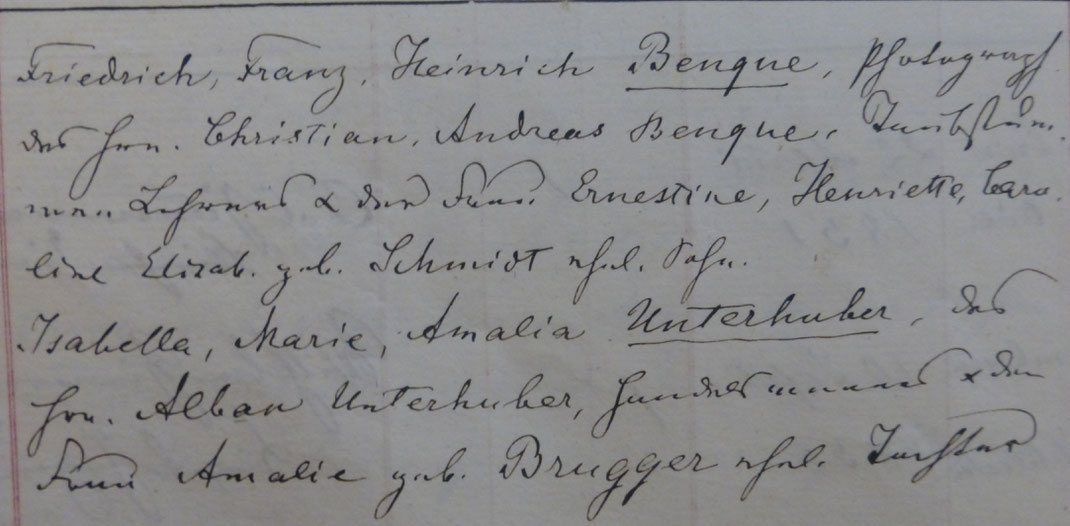 Friedrich, Franz, Heinrich Benque, Photograph
des Hrn. Christian, Andreas Benque, Taubstum-
men Lehrers & der Frau Ernestine, Henriette, Caro-
line Elisab. geb. Schmidt ehel. Sohn.
Isabella, Marie, Amalia Unterhuber, des
Hrn. Alban Unterhuber, Handelsmannes & der
Frau Amalie geb. Brugger ehel. Tochter